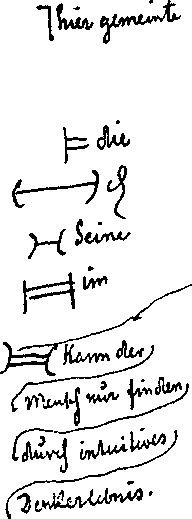 hier gemeinte
die
Seine
im
Kann der
Mensch nur finden
durch intuitives
Denkerlebnis.